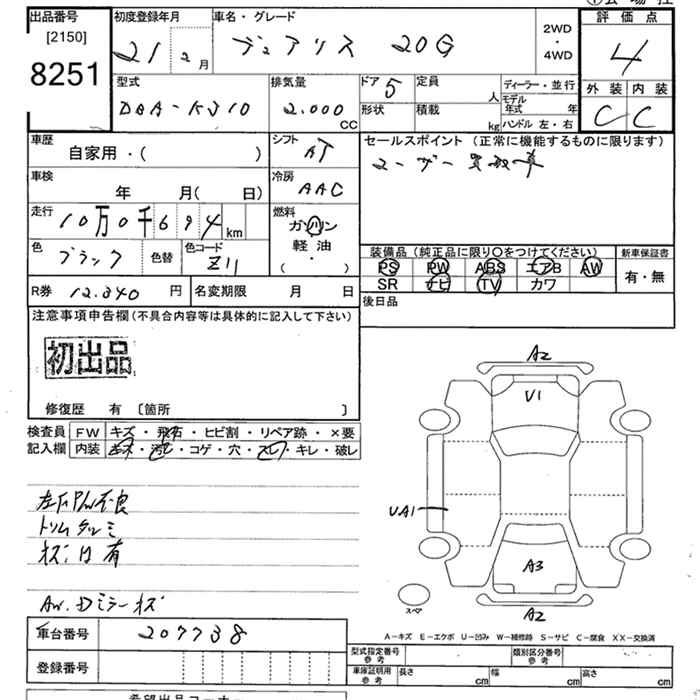 出品番号 初度登録年月 車名・グレード 評価点
[2150] 21 2月 デュアリス 20G 2WD・4WD 4
8251
型式 排気量 ドア 5 定員 人 ディーラー・並行 外装 内装
DBA-KJ10 2.000 CC 形状 積載 kg モデル年式 年 C C
ハンドル 左・右
車歴 シフト セールスポイント (正常に機能するものに限ります)
自家用・( ) AT ユーザー買取車
車検 冷房
年 月( 日) AAC
走行 燃料
10万0千694km ガソリン
色 色替 色コード 軽油
ブラック Z11 ( ・ )
装備品 (純品に限り〇をつけてください) 新車保証書
PS PW ABS エアB AW 有・無
SR ナビ TV カワ
R券 12.340 円 名変期限 月 日 後日品
注意事項申告欄 (不具合内容等は具体的に記入して下さい)
初出品
修復歴 有 〔箇所 〕
検査員 FW キズ・飛石・ヒビ割・リペア跡・×要
記入欄 内装 キズ・汚レ・コゲ・穴・スレ・キレ・破レ
A2
V1
UA1
A3
A2
スペア
キズ、凹有
AW.Dミラーキズ
A-キズ E-エクボ U-凹み W-補修跡 S-サビ C-腐食 XX-交換済
車台番号 207738
型式指定番号 参考 類別区分番号 参考
登録番号
車庫証明用 参考 長さ cm 幅 cm 高さ cm
希望出品コーナー